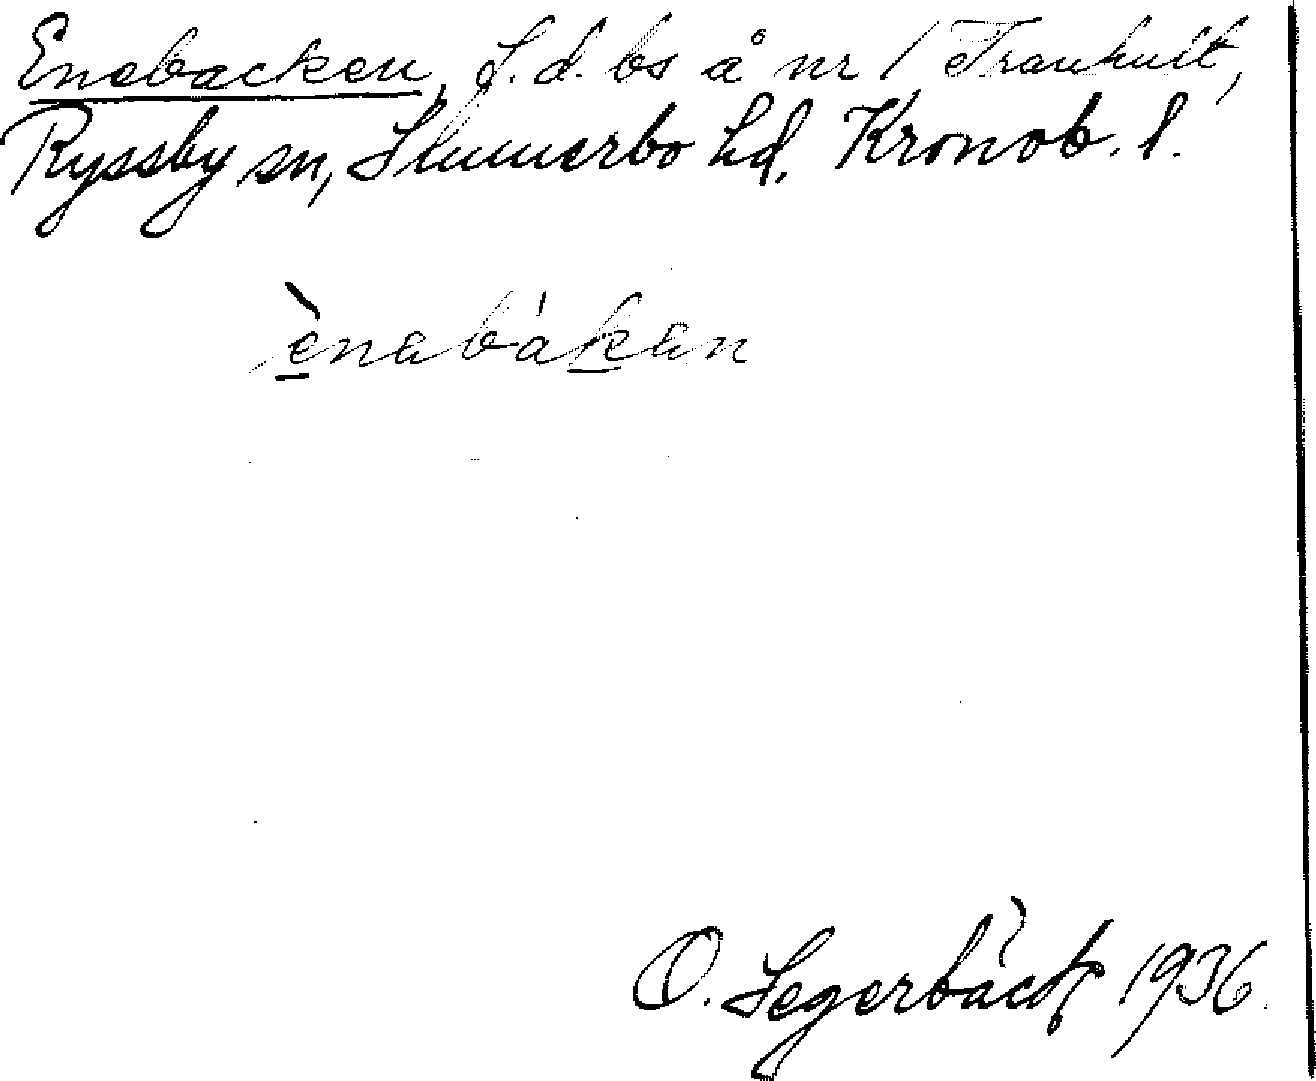 Enebacken, f.d. bs å nr 1 Tranhult,
Ryssby sn, Sunnerbo hd, Kronob. l.
ènabákan
O. Segerbäck 1936.